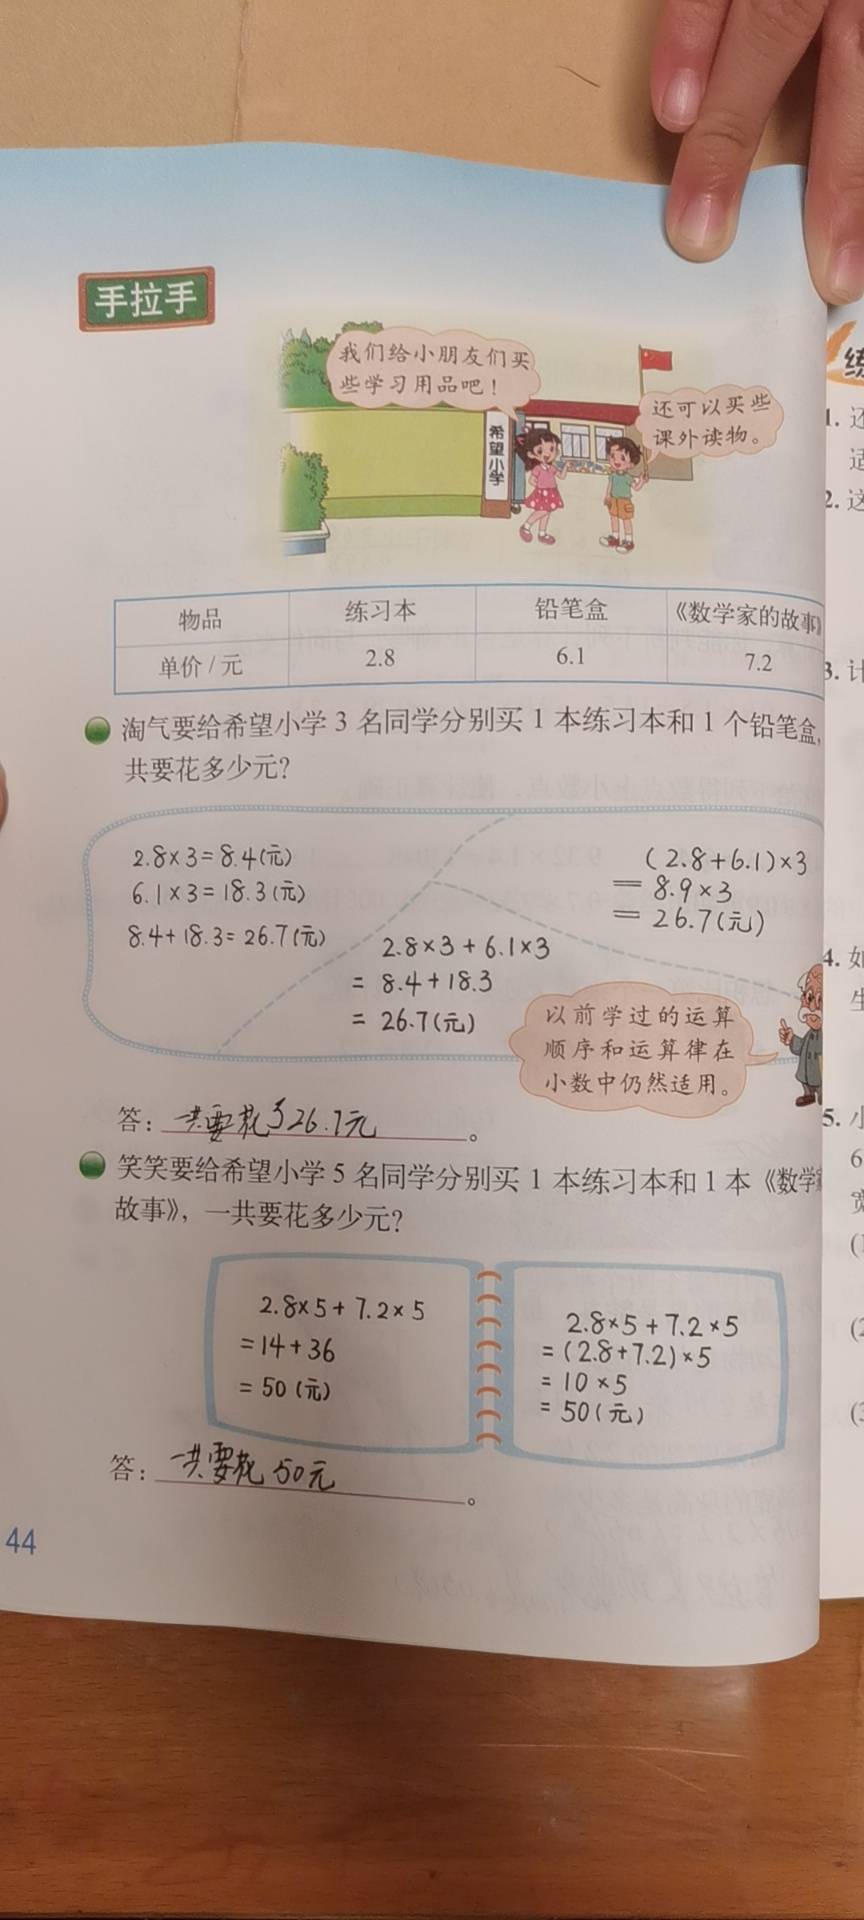 手拉手
我们给小朋友们买
些学习用品吧！
还可以买些
课外读物。
希望小学
物品 练习本 铅笔盒 《数学家的故事》
单价/元 2.8 6.1 7.2
淘气要给希望小学 3 名同学分别买 1 本练习本和 1 个铅笔盒,
共要花多少元?
2.8×3=8.4(元)
6.1×3=18.3(元)
8.4+18.3=26.7(元)
2.8×3+6.1×3
= 8.4+18.3
= 26.7(元)
(2.8+6.1)×3
= 8.9×3
= 26.7(元)
以前学过的运算
顺序和运算律在
小数中仍然适用。
答: 一共要花了26.7元。
笑笑要给希望小学 5 名同学分别买 1 本练习本和 1 本《数学
故事》, 一共要花多少元?
2.8×5+7.2×5
=14+36
=50(元)
2.8×5+7.2×5
=(2.8+7.2)×5
=10×5
=50(元)
答: 一共要花50元。
44
练
1. 还
适
2. 这
3. 计
4. 如
生
5. 小
6
宽
(1
(2
(3